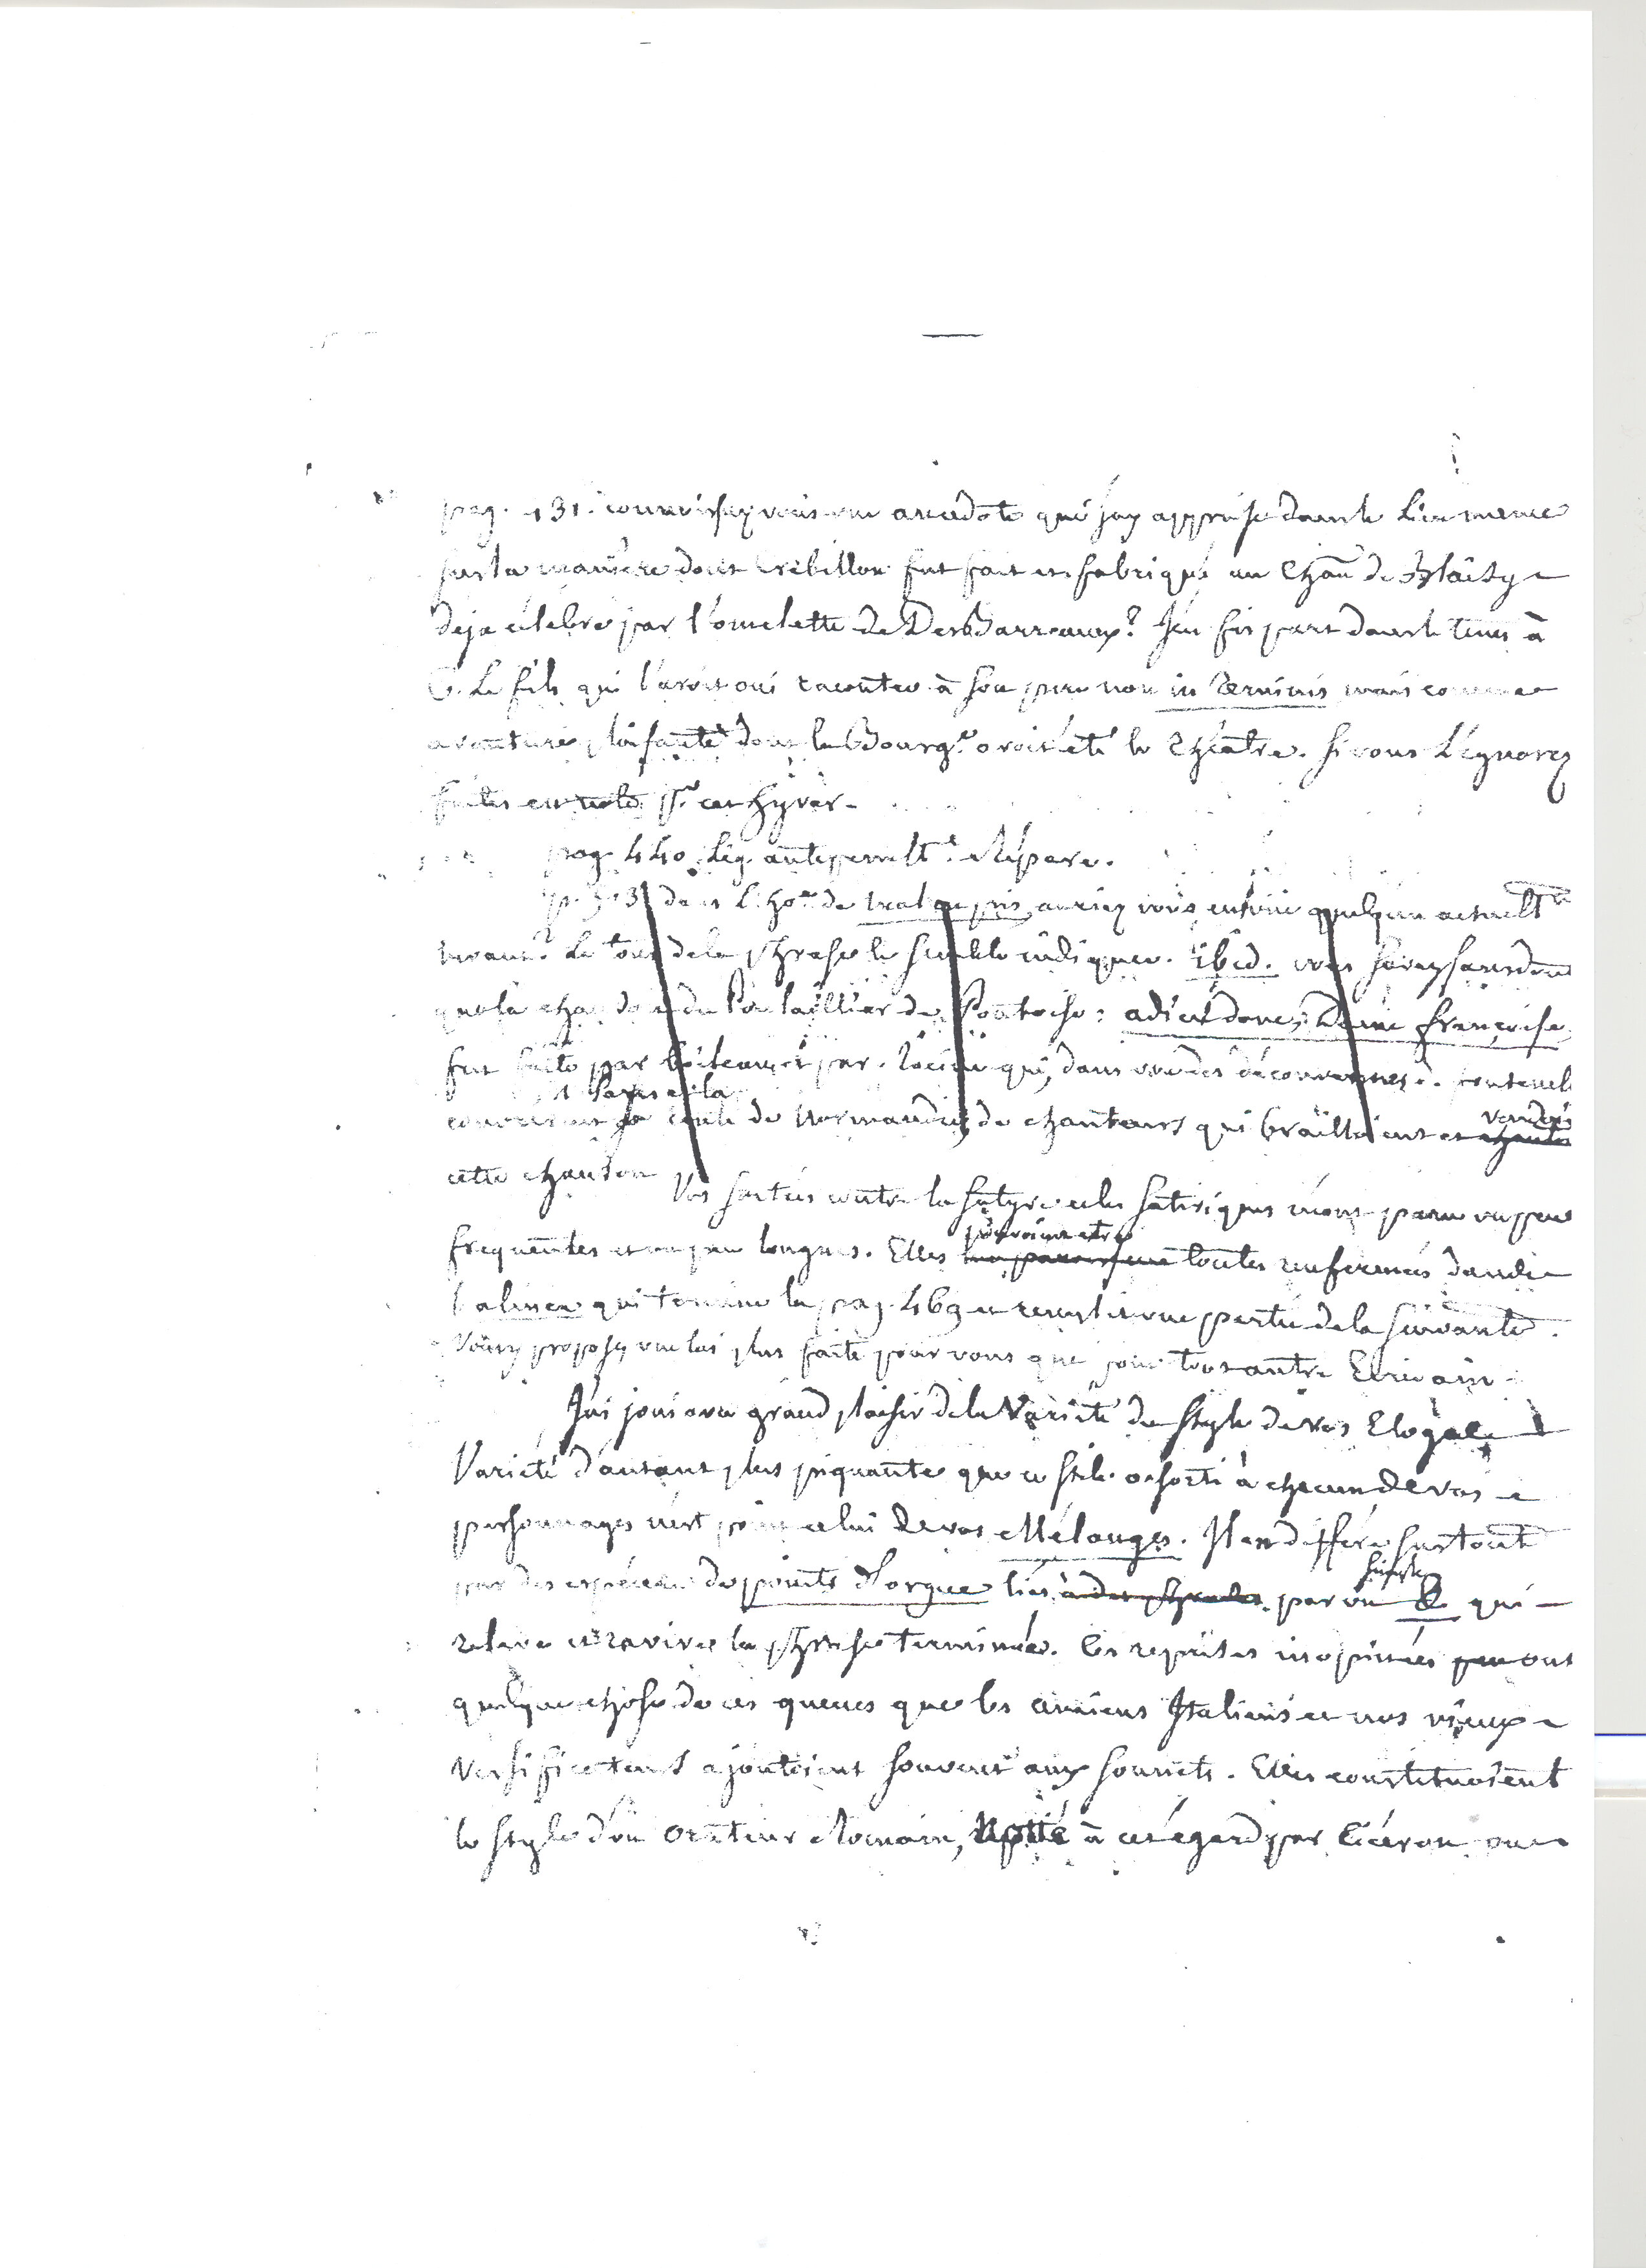 pag. 431. connoissez vous une anecdote que j'ay apprise dans le lieu meme
sur la maniere dont Crebillon fut fait et fabriqué au Chau de Blaisy
deja célebre par l'omelette de DesBarreaux? J'en fis part dans le tems à
C. le fils qui l'avoit oui raconter à son pere non in terminis mais comme
aventure plaisante dont la Bourge. avoit été le théatre. si vous l'ignorez
faites en note pr. cet hyver
pag. 440. lig. antepenulte. Répare.
p. 313 dans l' de auriez vous en vüe quelqu'un actuellt
vivant? Le tour de la phrase le semble indiquer. ibid. vous savez sans doute
que la chanson du Poulaillier de Pontoise: adieu donc, Dame françoise,
fut faite par Boileau et par Racine qui, dans une des découvertes d.
à Paris et la
couvrirent la de Normandie, de chanteurs qui brailloient et chanter vendoi
cette chanson
Vos sorties contre la satyre et les satiriques m'ont paru un peu
frequentes et un peu longues. Elles pourroient etre toutes renfermées dans
l'alinea qui termine la pag. 469 et remplit une partie de la suivante.
Vous y proposez une loi plus faite pour vous que pour tout autre Ecrivain.
J'ai joui avec grand plaisir de la Variété du style de vos Eloges
Variété d'autant plus piquante que ce stile assorti à chacun de vos
personnages n'est point celui de vos Mélanges. Il en differe surtout
par des especes de points d'orgue liés à des phrases par un simple & qui
releve et ravive la phrase terminée. Ces reprises inopinées ont
quelque chose de ces queues que les anciens Italiens et nos vieux
versificateurs ajoutoient souvent aux sonnets. Elles constituoient
le style d'un orateur Romain, Notté à cet égard par Ciceron